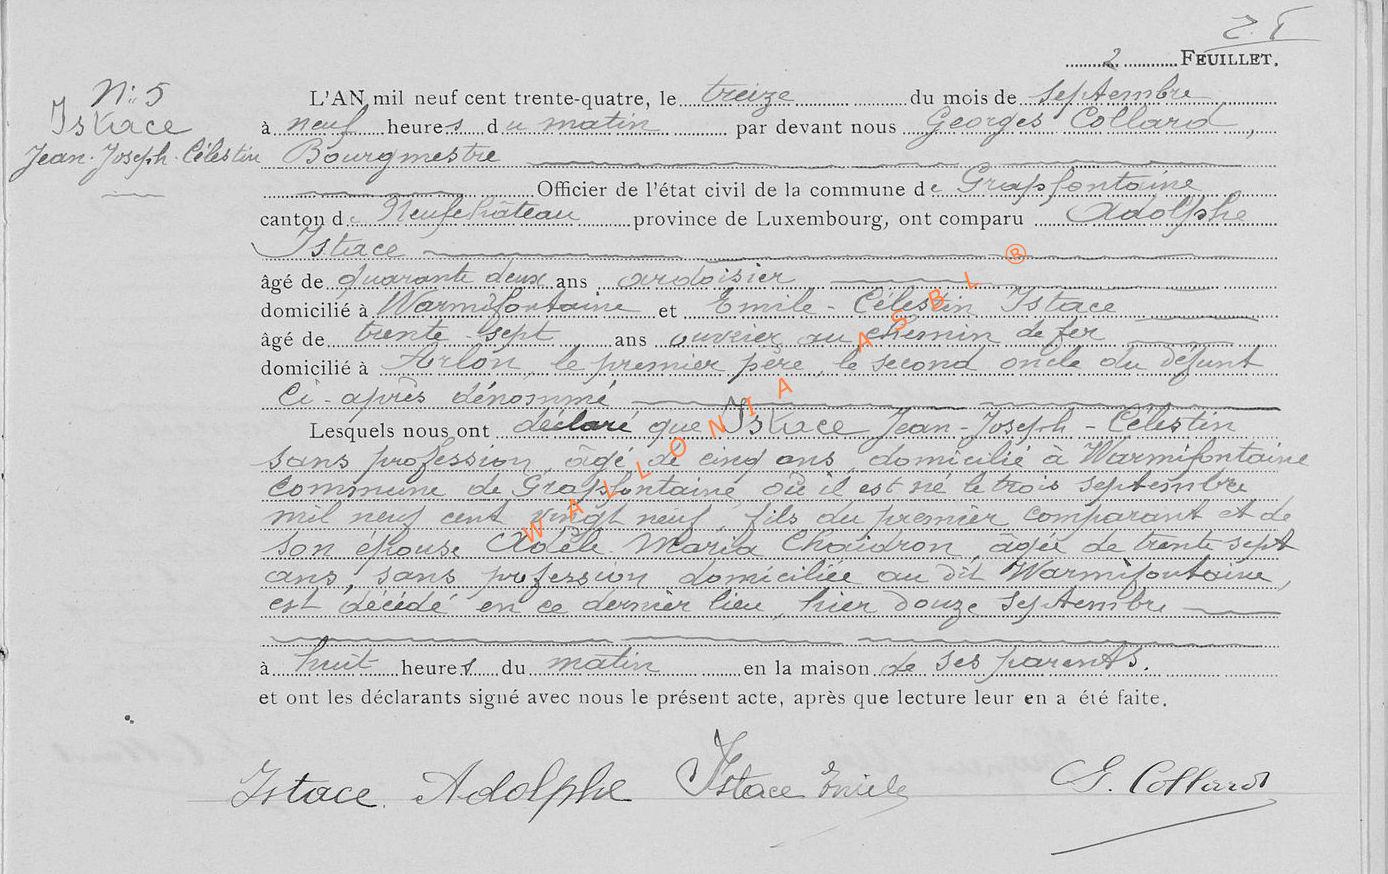 2 FEUILLET.
N° 5
Istace
Jean-Joseph-Célestin
L'AN mil neuf cent trente-quatre, le treize du mois de septembre
à neuf heures du matin par devant nous Georges Collard,
Bourgmestre
Officier de l'état civil de la commune de Grapfontaine
canton de Neufchâteau province de Luxembourg, ont comparu Adolphe
Istace
âgé de quarante deux ans ardoisier
domicilié à Warmifontaine et Emile-Célestin Istace
âgé de trente-sept ans ouvrier au chemin de fer
domicilié à Arlon, le premier père, le second oncle du défunt
ci-après dénommé
Lesquels nous ont déclaré que Istace Jean-Joseph-Célestin
sans profession, âgé de cinq ans, domicilié à Warmifontaine
commune de Grapfontaine, où il est né le trois septembre
mil neuf cent vingt neuf, fils du premier comparant et de
son épouse Adèle Maria Chaidron, âgée de trente sept
ans, sans profession domiciliée au dit Warmifontaine,
est décédé en ce dernier lieu, hier douze septembre
à huit heures du matin en la maison de ses parents.
et ont les déclarants signé avec nous le présent acte, après que lecture leur en a été faite.
Istace Adolphe Istace Emile G. Collard
WALLONIA ASBL ®